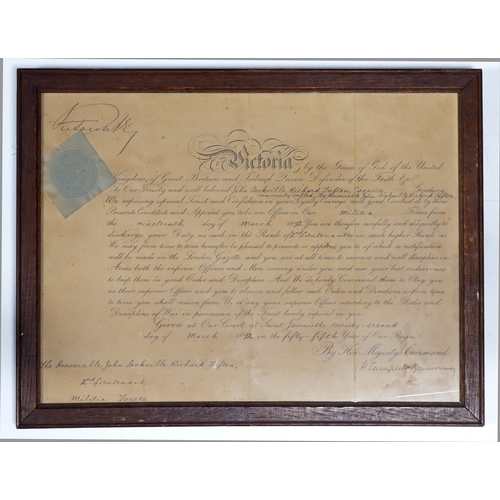 Victoria R
Victoria, by the Grace of God of the United
Kingdom of Great Britain and Ireland Queen, Defender of the Faith &c.
To Our Trusty and well beloved John Sackville Richard Tufton, Greeting
We, reposing especial Trust and Confidence in your Loyalty, Courage, and good Conduct, do by these
Presents Constitute and Appoint you to be an Officer in Our Militia Forces from
the nineteenth day of March 1892. You are therefore carefully and diligently to
discharge your Duty as such in the Rank of 2nd Lieutenant or in such higher Rank as
We may from time to time hereafter be pleased to promote or appoint you to of which a notification
will be made in the London Gazette and you are at all times to exercise and well discipline in
Arms both the inferior Officers and Men serving under you and use your best endeavours
to keep them in good Order and Discipline. And We do hereby Command them to Obey you
as their superior Officer and you to observe and follow such Orders and Directions as from time
to time you shall receive from Us or any your superior Officer according to the Rules and
Discipline of War in pursuance of the Trust hereby reposed in you.
Given at Our Court at Saint James's the twenty second
day of March 1892 in the fifty-fifth Year of Our Reign
By Her Majesty's Command
The Honourable John Sackville Richard Tufton,
2nd Lieutenant
Militia Forces
H Campbell-Bannerman